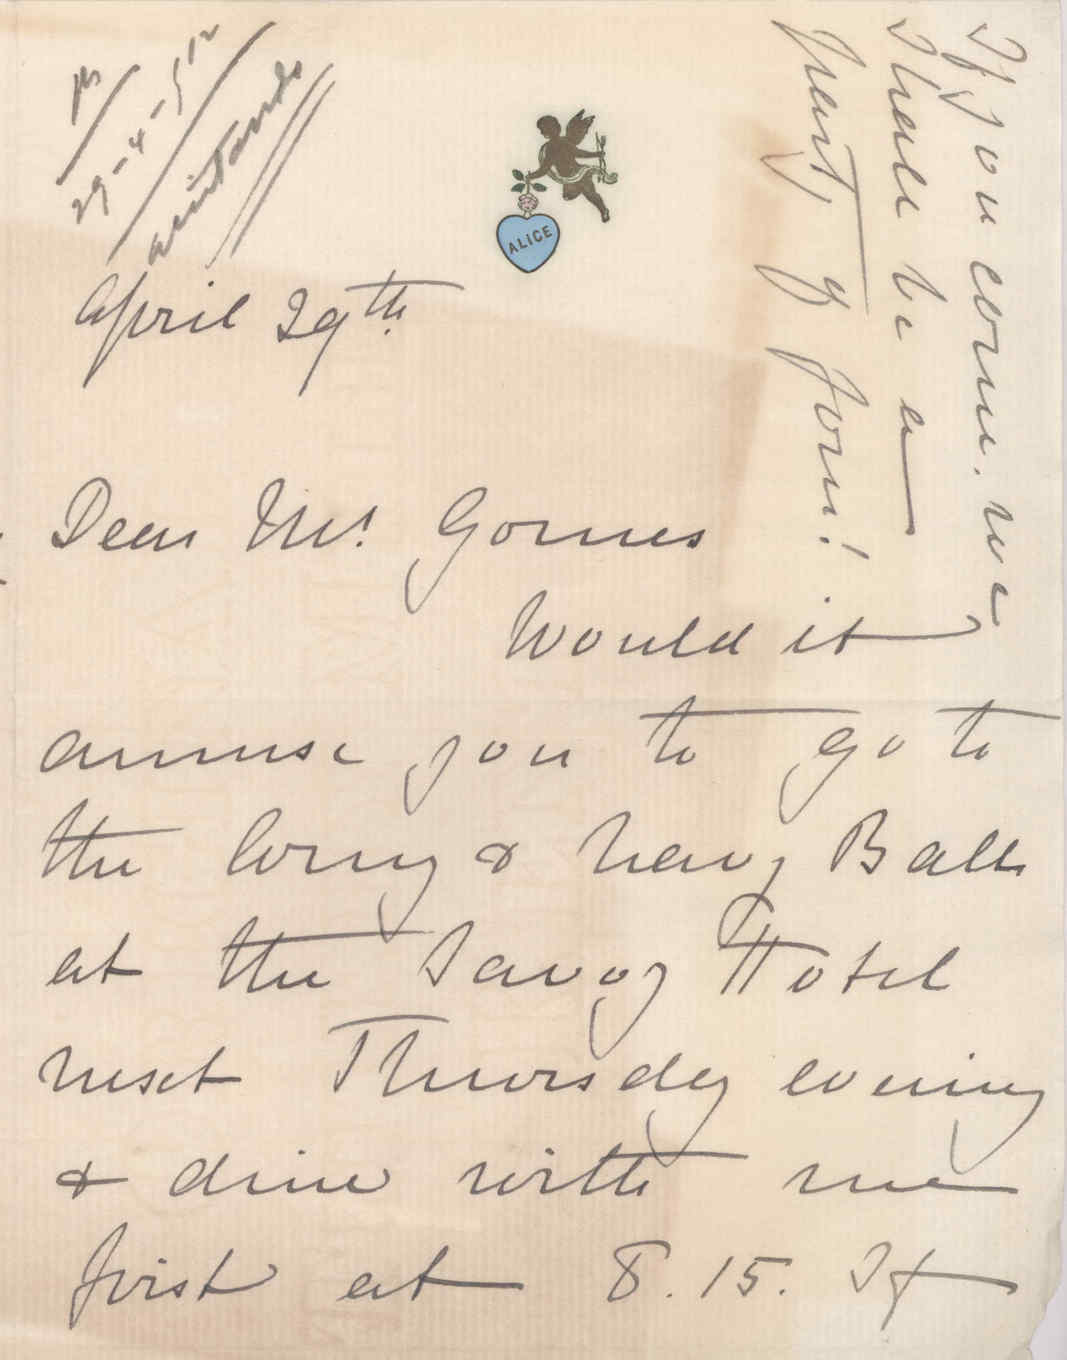 ALICE
April 29th
Dear Mr. Gomes
Would it
amuse you to go to
the Army & Navy Ball
at the Savoy Hotel
next Thursday evening
& dine with me
first at 8.15. If
If you come. we
shall be a
party of four!